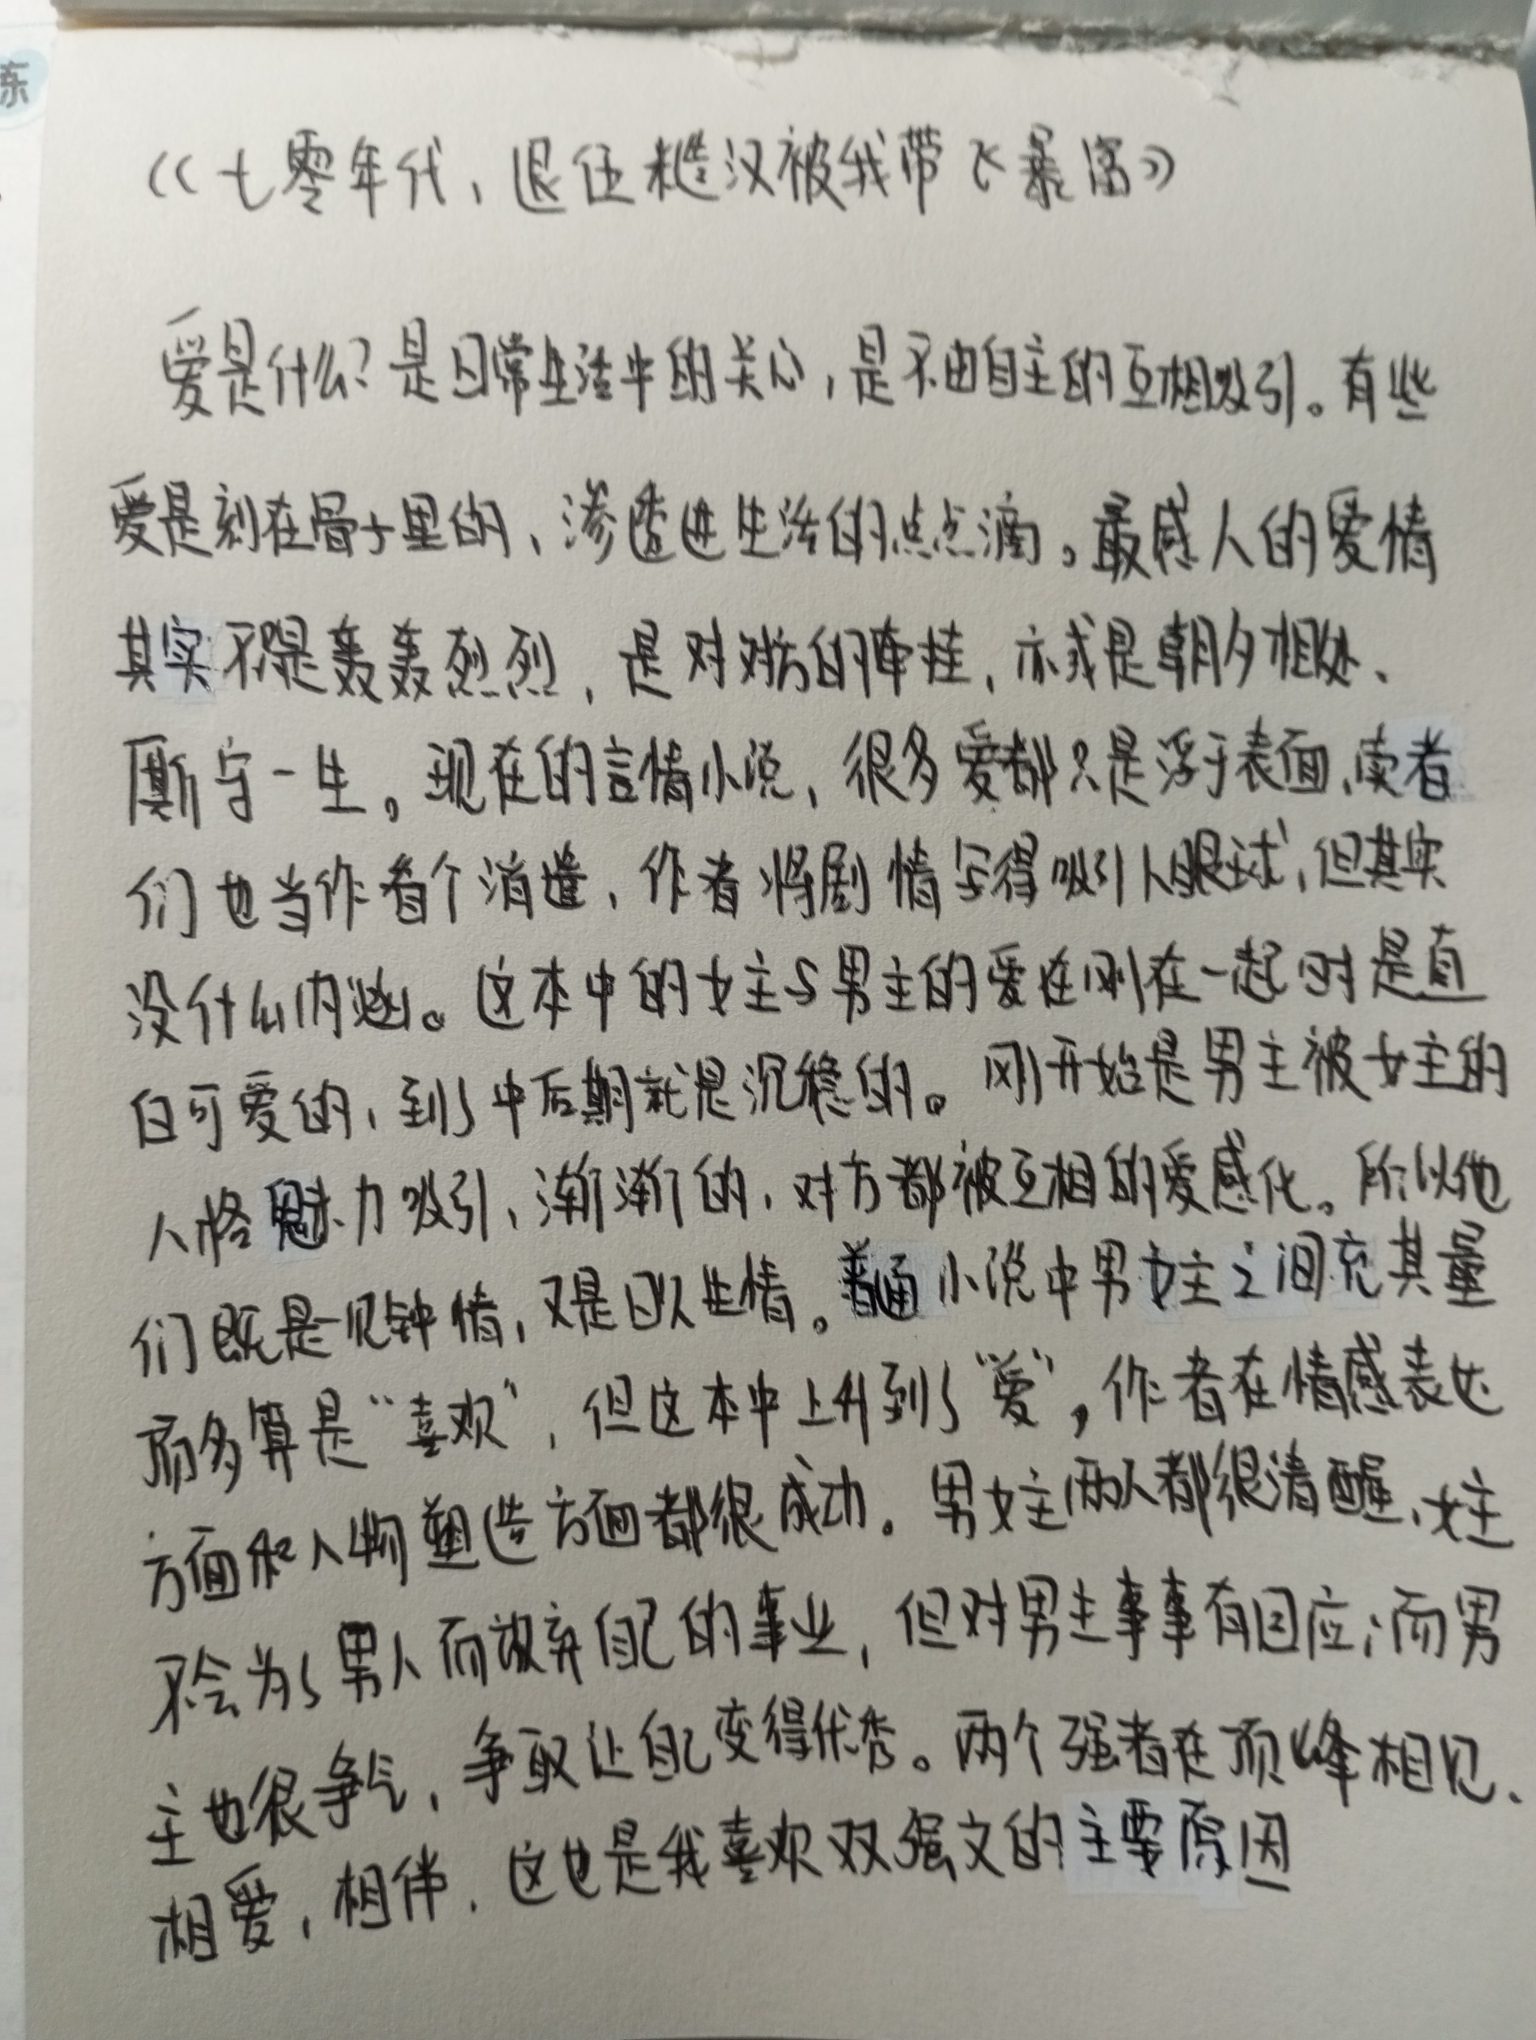 东
《七零年代,退伍糙汉被我带飞暴富》
爱是什么?是日常生活中的关心,是不由自主的互相吸引。有些
爱是刻在骨子里的、渗透进生活的点点滴。最感人的爱情
其实不是轰轰烈烈,是对对方的牵挂,亦或是朝夕相处、
厮守一生。现在的言情小说,很多爱都只是浮于表面,读者
们也当作看个消遣,作者将剧情写得吸引人眼球,但其实
没什么内涵。这本中的女主与男主的爱在刚在一起时是直
白可爱的,到了中后期就是沉稳的。刚开始是男主被女主的
人格魅力吸引、渐渐的,对方都被互相的爱感化。所以他
们既是一见钟情,又是日久生情。普通小说中男女主之间充其量
而多算是“喜欢”,但这本中上升到了“爱”,作者在情感表达
方面和人物塑造方面都很成功。男女主两人都很清醒、女主
不会为了男人而放弃自己的事业,但对男主事事有回应;而男
主也很争气,争取让自己变得优秀。两个强者在顶峰相见、
相爱,相伴,这也是我喜欢双强文的主要原因